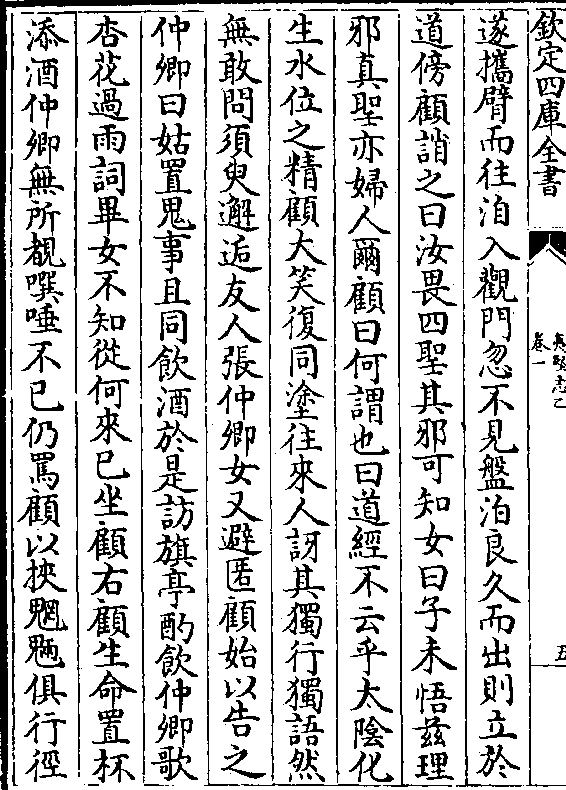 欽定四庫全書
夷堅志乙
卷一
五
遂攜臂而往洎入觀門忽不見盤泊良久而出則立於
道傍顧誚之曰汝畏四聖其邪可知女曰子未悟茲理
邪真聖亦婦人爾顧曰何謂也曰道經不云乎太陰化
生水位之精顧大笑復同塗往來人訝其獨行獨語然
無敢問須臾邂逅友人張仲卿女又避匿顧始以告之
仲卿曰姑置鬼事且同飲酒於是訪旗亭酌飲仲卿歌
杏花過雨詞畢女不知從何來已坐顧右顧生命置杯
添酒仲卿無所覩噀唾不已仍罵顧以挾魍魎俱行徑